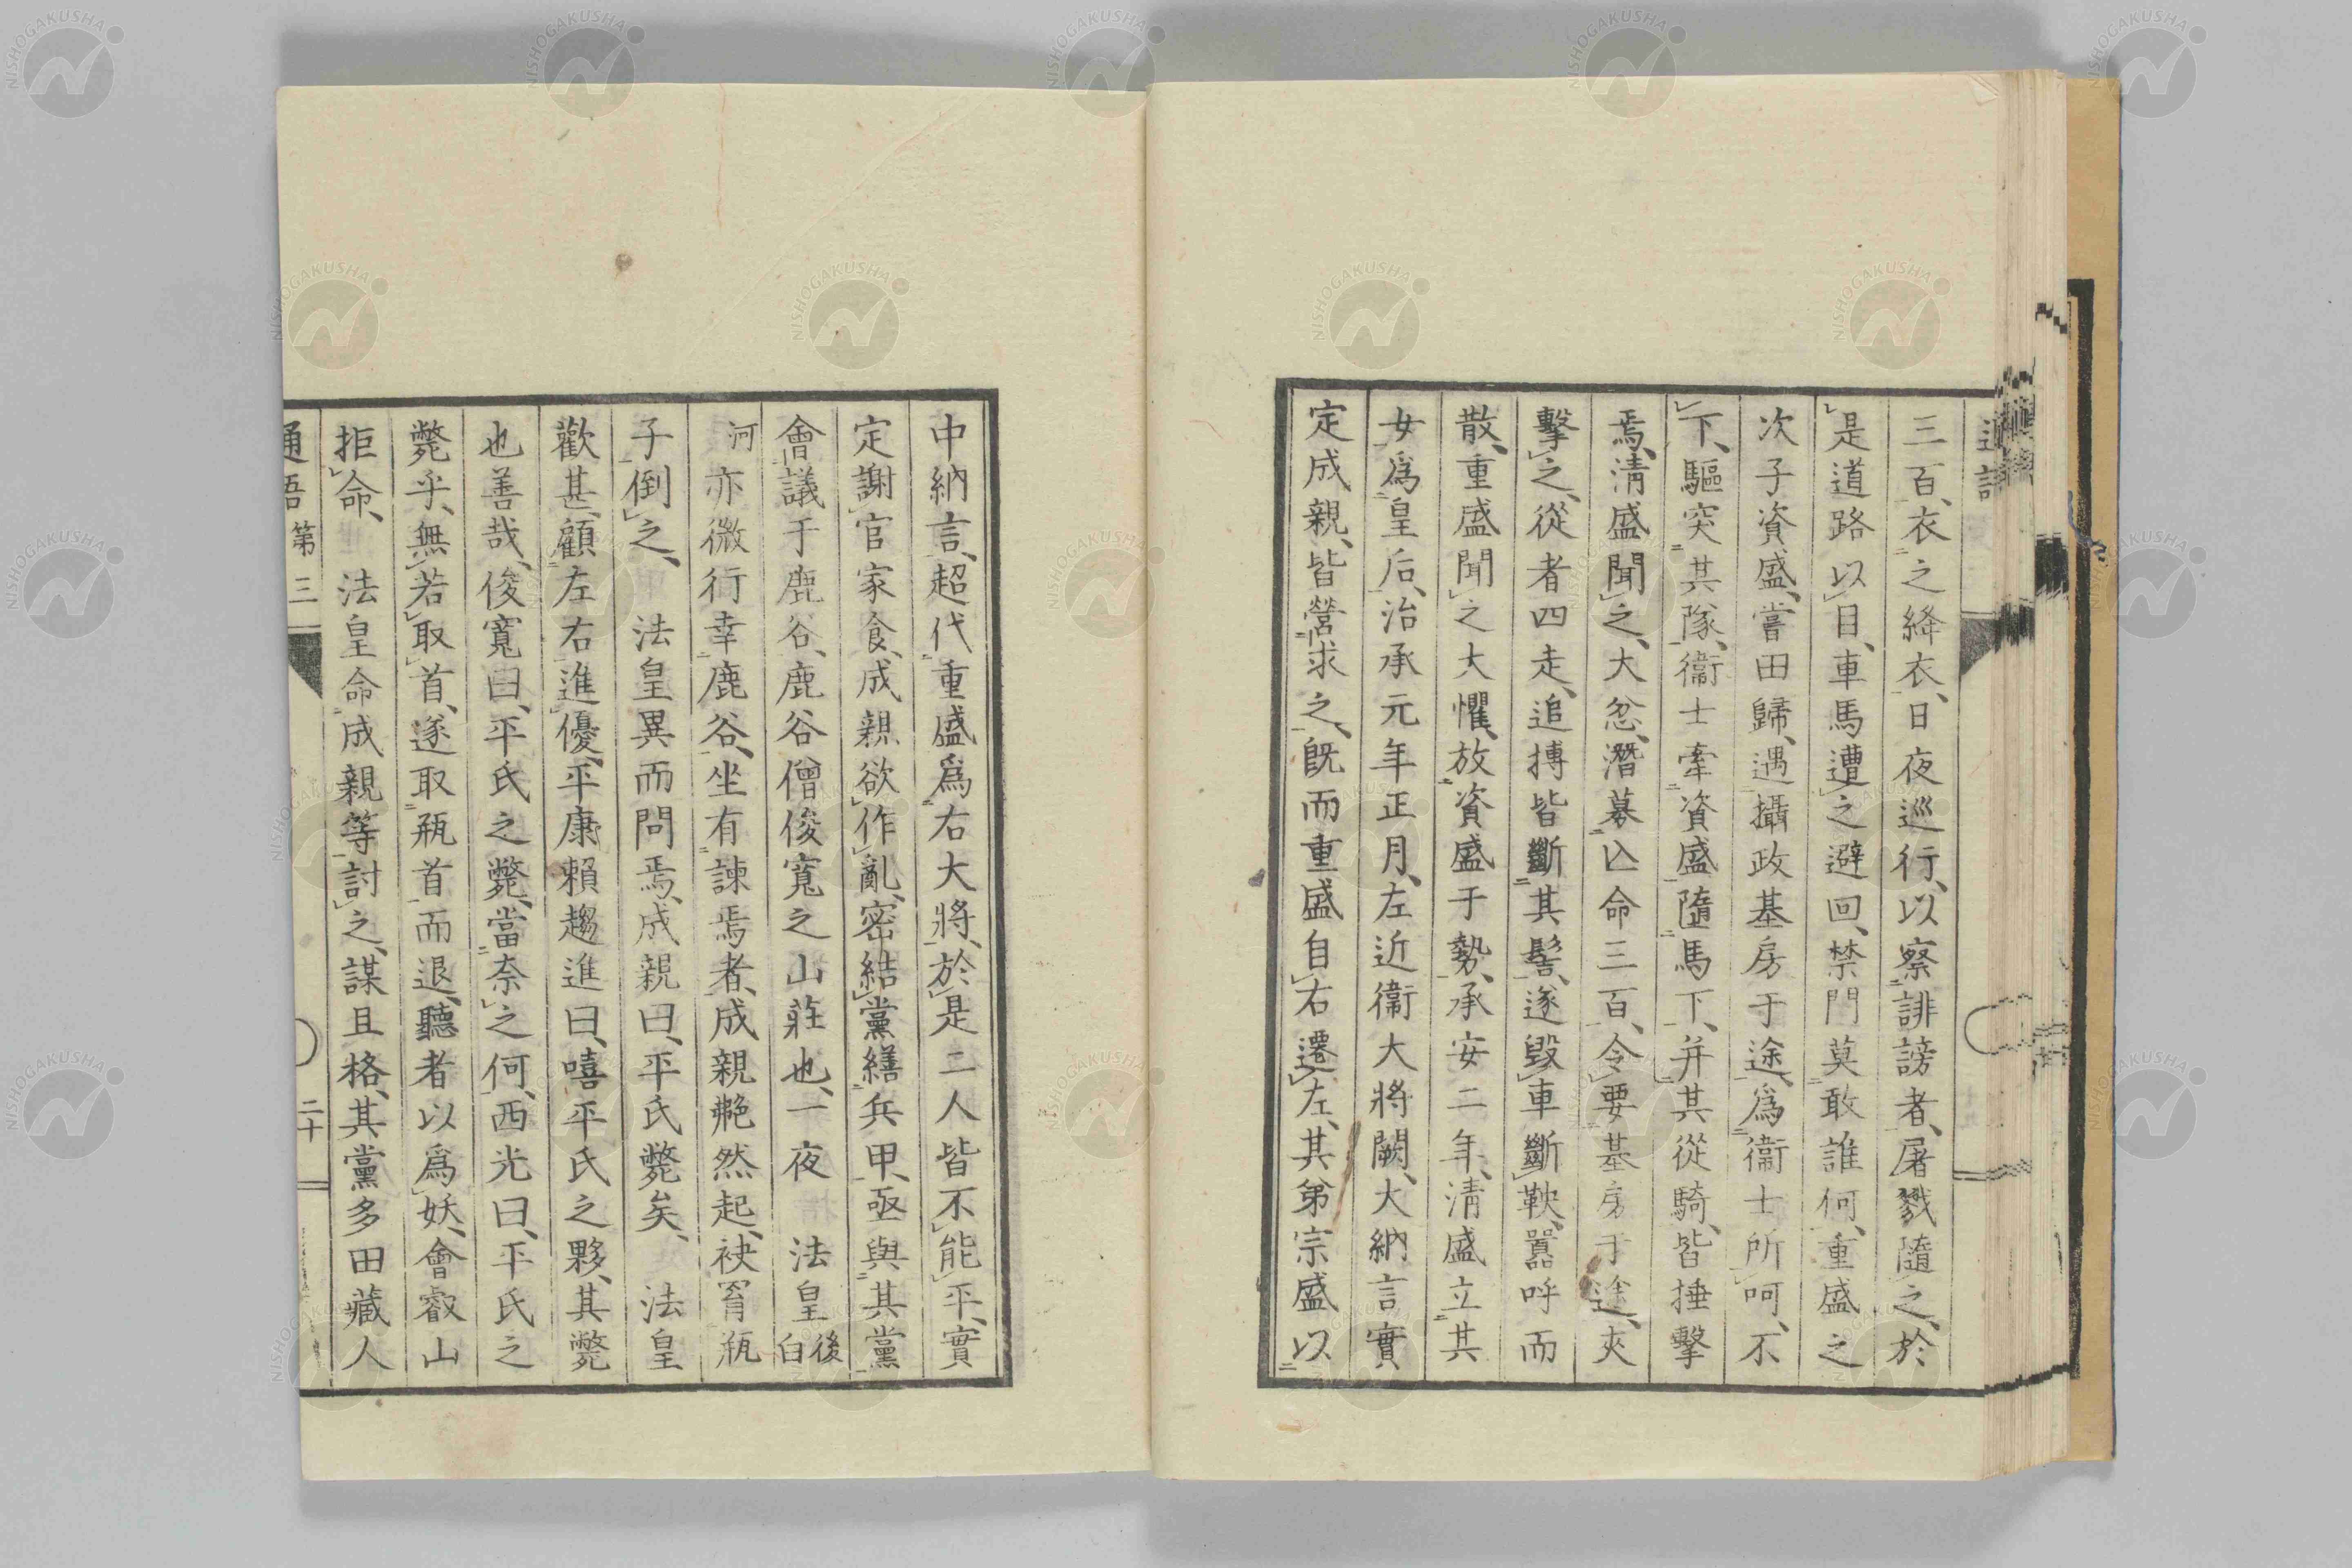 三百、衣之絳衣、日夜巡行、以察誹謗者、屠戮隨之、於
是道路以目、車馬遭之避回、禁門莫敢誰何、重盛之
次子資盛、嘗田歸、遇攝政基房于途、爲衞士所呵、不
下、驅突其隊、衞士牽資盛隨馬下、并其從騎、皆捶擊
焉、淸盛聞之、大忿、潛募亡命三百、令要基房于途、夾
擊之、從者四走、追摶皆斷其髻、遂毀車斷鞅、嚣呼而
散、重盛聞之大懼、放資盛于勢、承安二年、淸盛立其
女爲皇后、治承元年正月、左近衞大將闕、大納言實
定成親、皆營求之、旣而重盛自右遷左、其弟宗盛以
中納言、超代重盛爲右大將、於是二人皆不能平、實
定謝官家食、成親欲作亂、密結黨繕兵甲、亟與其黨
會議于鹿谷、鹿谷僧俊寬之山莊也、一夜 法皇後白
河亦微行幸鹿谷、坐有諫焉者、成親艴然起、袂罥瓶
子倒之、 法皇異而問焉、成親曰、平氏斃矣、 法皇
歡甚、顧左右進優、平康賴趨進曰、嘻平氏之夥、其斃
也善哉、俊寬曰、平氏之斃、當奈之何、西光曰、平氏之
斃乎、無若取首、遂取瓶首而退、聽者以爲妖、會叡山
拒命、 法皇命成親等討之、謀且格、其黨多田藏人
通語 第三 二十